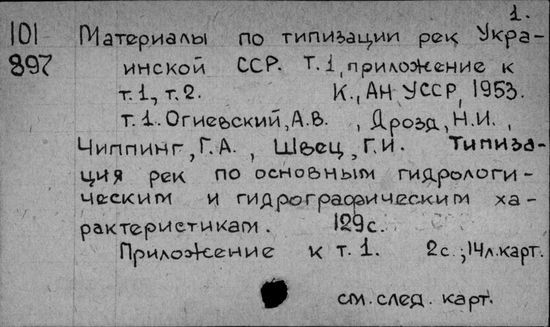 1.
101 Материалы по типизации рек Укра-
897 инской ССР. Т.1, приложение к
т.1, т.2. К., АН УССР, 1953.
т.1. Огиевский, А.В. , Дрозд, Н.И. ,
Чиппинг, Г.А. , Швец, Г.И. Типиза-
ция рек по основным гидрологи-
ческим и гидрографическим ха-
рактеристикам. 129с.
Приложение к т.1. 2с.; 14л.карт.
см. след. карт.